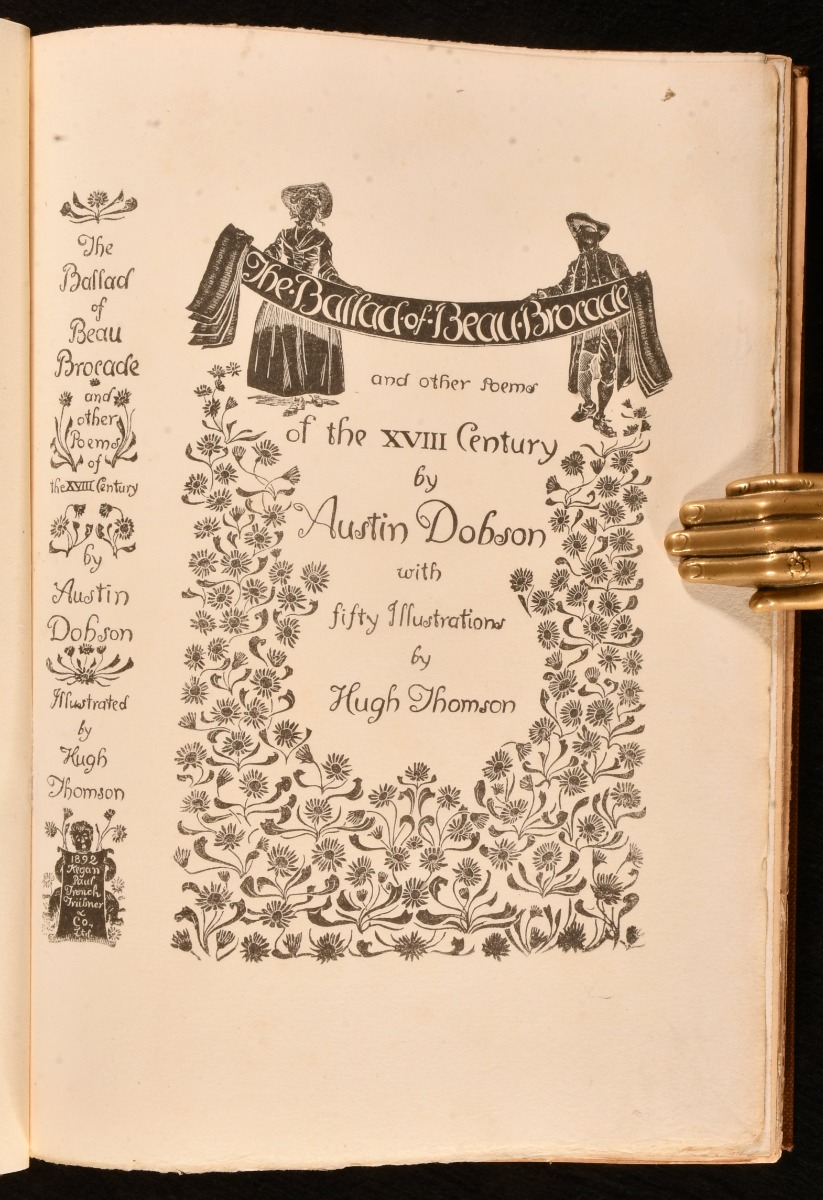 The
Ballad
of
Beau
Brocade
and
other
Poems
of
the XVIII Century
by
Austin
Dobson
Illustrated
by
Hugh
Thomson
1892
Kegan
Paul
Trench
Trübner
& Co.
Ltd.
The·Ballad·of·Beau·Brocade
and other Poems
of the XVIII Century
by
Austin Dobson
with
fifty Illustrations
by
Hugh Thomson